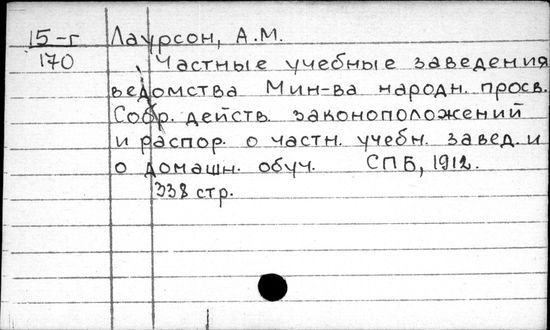 15-г Лаурсон, А.М.
170 Частные учебные заведения
ведомства Мин-ва народн. просв.
Собр. действ. законоположений
и распор. о частн. учебн. завед. и
о домашн. обуч. СПБ, 1912.
338 стр.